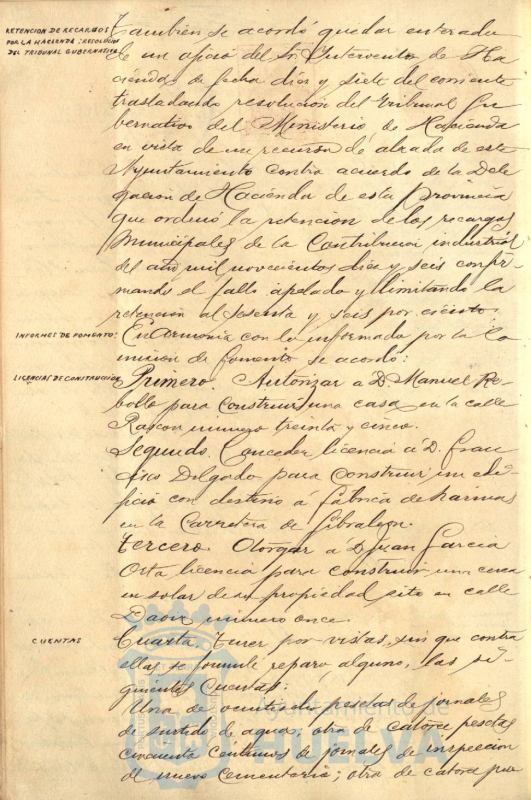 RETENCION DE RECARGOS
POR LA HACIENDA: RESOLUCION
DEL TRIBUNAL GUBERNATIVO
Tambien se acordó quedar enterado
de un oficio del Sr. Interventor de Ha-
cienda de fecha diez y siete del corriente
trasladando resolucion del tribunal Gu-
bernativo del Ministerio de Hacienda
en vista de un recurso de alzada de este
Ayuntamiento contra acuerdo de la Dele
gacion de Hacienda de esta Provincia
que ordenó la retencion de los recargos
Municipales de la Contribucion industrial
del año mil novecientos diez y seis confir-
mando el fallo apelado y limitando la
retencion al sesenta y seis por ciento.
INFORMES DE FOMENTO:
En Armonía con lo informado por la Co
mision de fomento se acordó:
LICENCIAS DE CONSTRUCCION
Primero. Autorizar a D. Manuel Re-
bollo para construir una casa en la calle
Rascon numero treinta y cinco.
Segundo. Conceder licencia á D. Fran
cisco Delgado para construir un edi-
ficio con destino á fábrica de harinas
en la Carretera de Gibraleon.
Tercero. Otorgar a D. Juan Garcia
Orta licencia para construir una casa
en solar de su propiedad sito en calle
Daoiz numero once.
CUENTAS
Cuarta. Tener por vistas, sin que contra
ellas se formule reparo alguno, las si-
guientes cuentas:
Una de pesetas de jornales
de surtido de aguas; otra de catorce pesetas
cincuenta centimos de jornales de inspeccion
del nuevo cementerio; otra de catorce pese
Ayuntamiento de
HUELVA